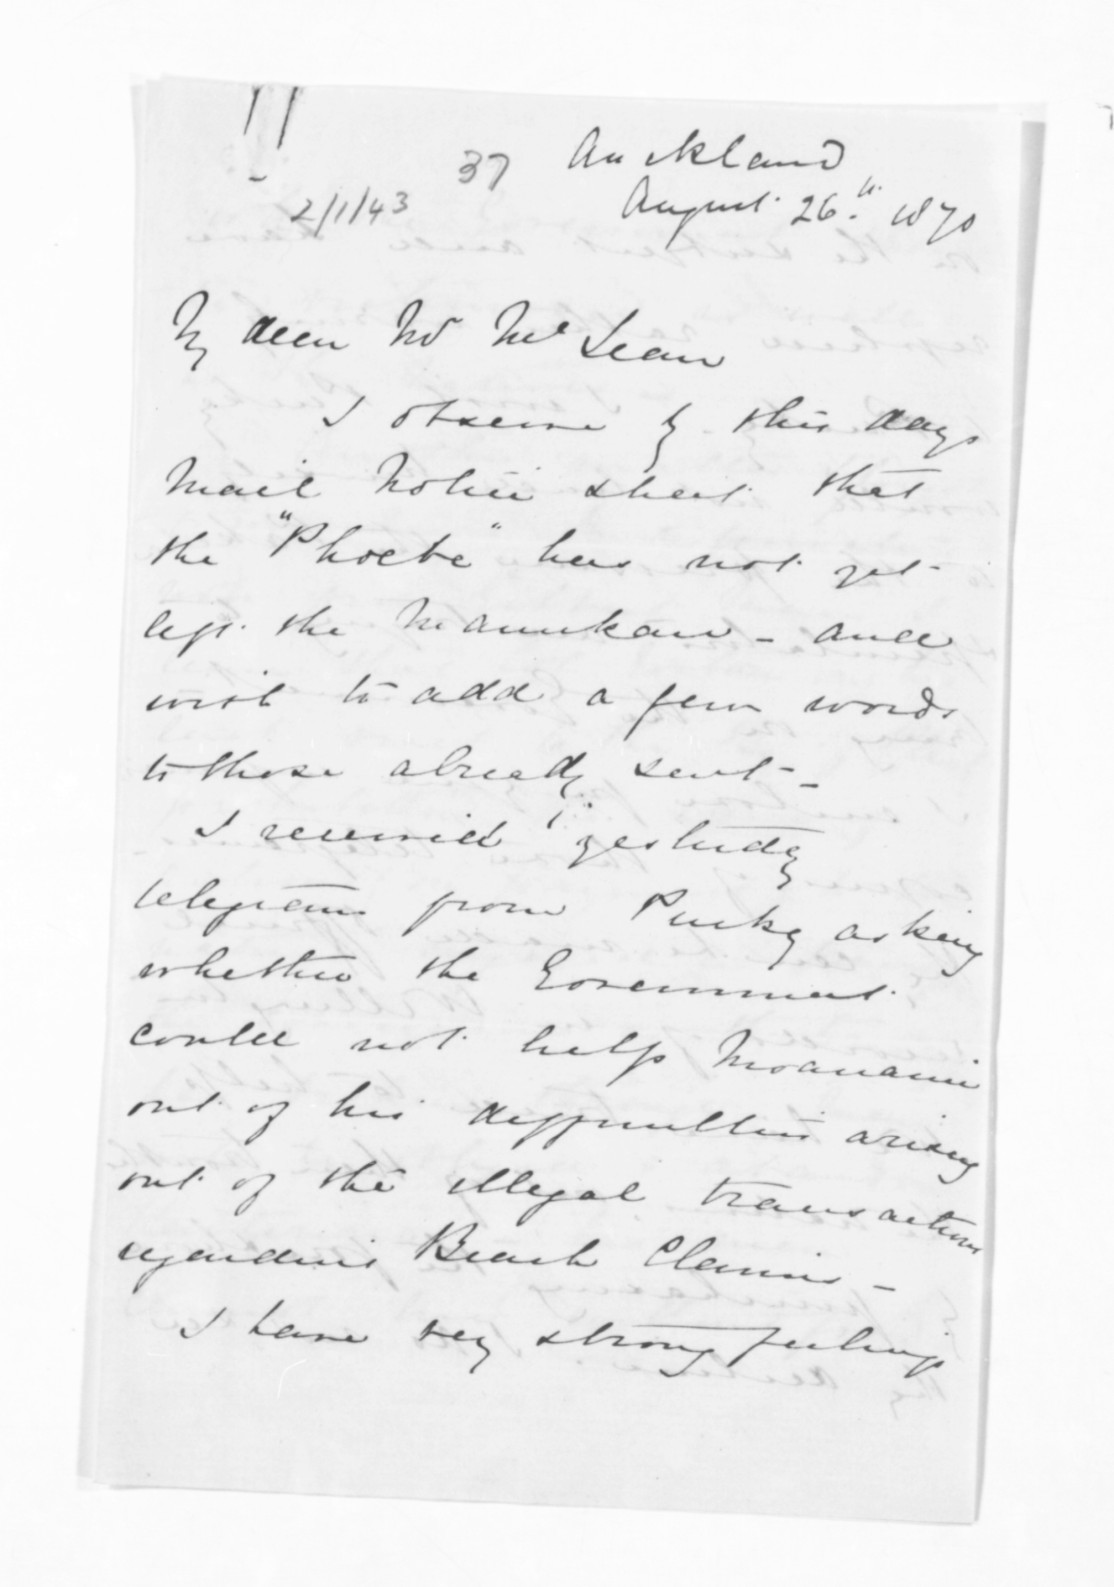 37
2/1/43
Auckland
August 26th 1870
My dear Mr McLean
I observe by this days
Mail Notice sheet that
the "Phoebe" has not yet
left the Manukau - and
wish to add a few words
to those already sent -
I received yesterday
telegram from Puckey asking
whether the Government
could not help Moanaui
out of his difficulties arising
out of the illegal transactions
regarding Beach Claims -
I have very strong feelings